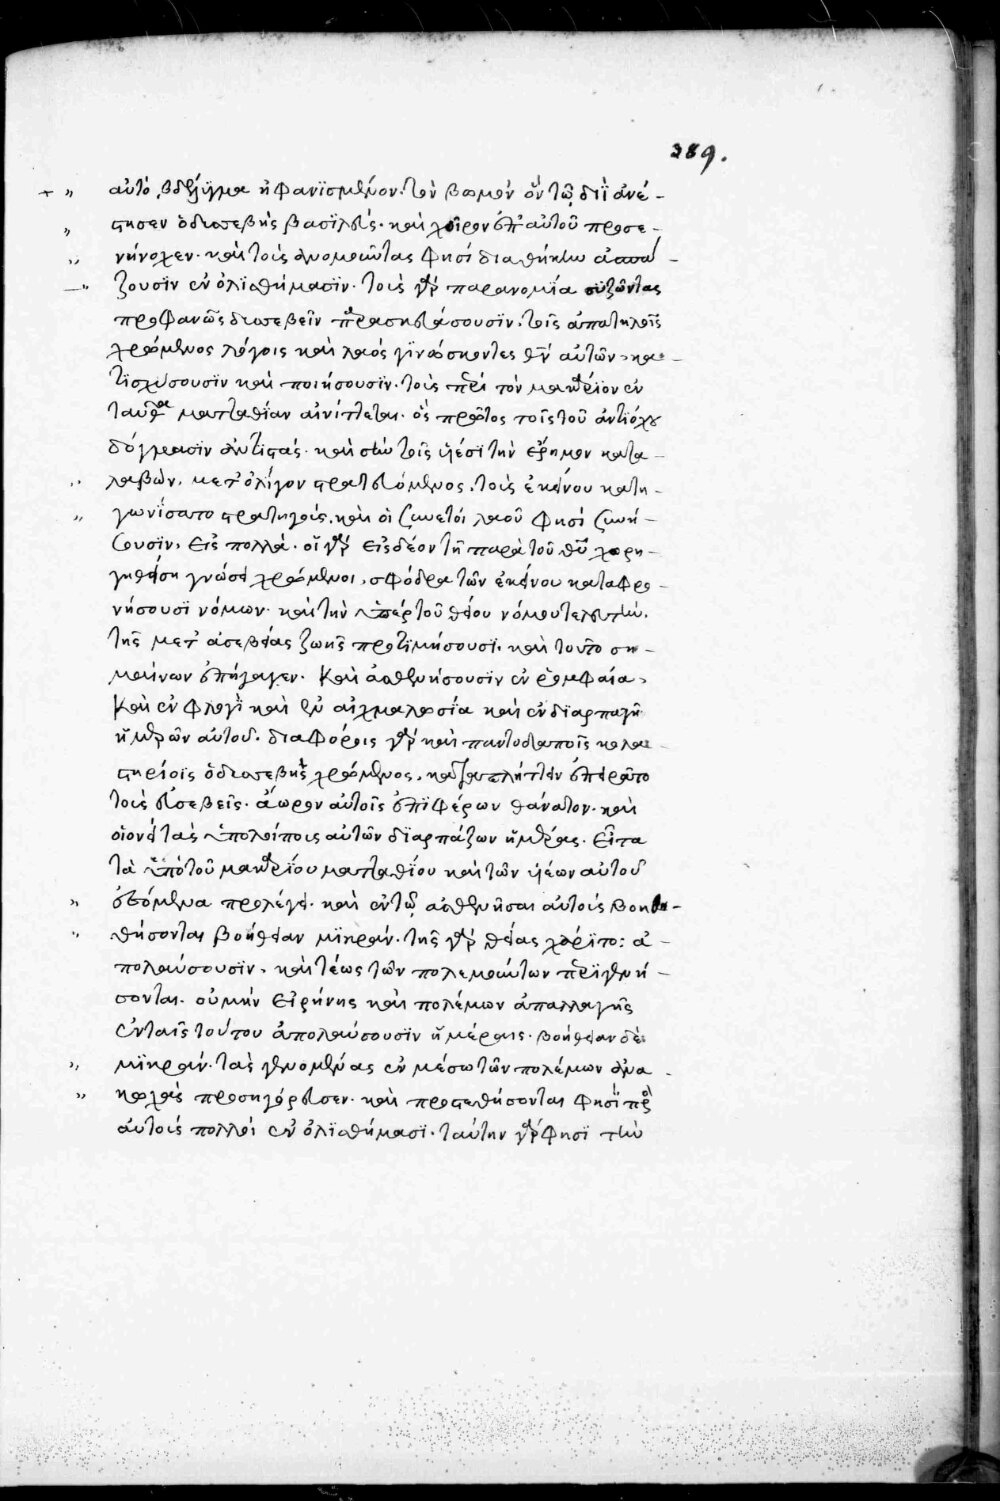 389.
αὐτὸ, βδέλϋγμα ἠφανϊσμένον. τὸν βωμὸν ὃν τῷ διῒ ἀνέ-
στησεν ὁ δυσσεβὴς βασϊλεύς. καὶ χοῖρον ἐπ' αὐτοῦ προσε-
νήνοχεν. καὶ τοὺς ἀνομοῦντας φησὶ διαθήκην ἀπα
ξουσϊν ἐν ὀλϊσθήμασϊν. τοὺς γὰρ παρανομία συζῶντας
προφανῶς δυσσεβεῖν παρασκευάσουσϊν. τοῖς ἀπατηλοῖς
χρώμενος λόγοις καὶ λαὸς γϊνώσκοντες θεὸν αὐτῶν, κα-
τϊσχύσουσϊν καὶ ποιήσουσϊν. τοὺς περὶ τὸν μακάριον ἐν
ταῦθα ματταθίαν αἰνίττεται. ὃς πρῶτος τοῖς τοῦ ἀντϊόχου
δόγμασϊν ἀντϊστάς. καὶ σὺν τοῖς ὑέσϊ τὴν ἔρημον κατα-
λαβὼν. μετ' ὀλίγον στρατευόμενος. τοὺς ἐκείνου κατη-
γωνΐσατο στρατηγούς. καὶ οἱ συνετοὶ λαοῦ φησὶ συνή-
σουσϊν, εἰς πολλὰ. οἵ γὰρ εἰς δέον τῇ παρὰ τοῦ θεοῦ χορη-
γηθείση γνώσει χρώμενοι, σφόδρα τῶν ἐκείνου καταφρο-
νήσουσϊ νόμων. καὶ τὴν ὑπὲρ τοῦ θείου νόμου τελευτὴν.
τῆς μετ' ἀσεβείας ζωῆς προτϊμήσουσϊ. καὶ τοῦτο ση-
μαίνων ἐπήγαγεν. Καὶ ἀσθενήσουσϊν ἐν ῥομφαία,
Καὶ ἐν φλογῒ καὶ ἐν αἰχμαλωσία καὶ ἐν διαρπαγῆ
ἡμερῶν αὐτοῦ. διαφόροις γὰρ καὶ παντοδαποῖς κολα-
στηρίοϊς ὁ δυσσεβὴς χρώμενος. καταπλήττειν ἐπειρᾶτο
τοὺς εὐσεβεῖς. ἄωρον αὐτοῖς ἐπϊφέρων θάνατον. καὶ
οἱονεὶ τὰς ὑπολοίπους αὐτῶν δϊαρπάζων ἡμέρας. Εἶτα
τὰ ὑπὸ τοῦ μακαρΐου ματταθΐου καὶ τῶν ὑέων αὐτοῦ
ἐσόμενα προλέγει. καὶ ἐν τῷ ἀσθενῆσαι αὐτοὺς βοη-
θήσονται βοήθειαν μϊκράν. τῆς γὰρ θείας χάρϊτος ἀ-
πολαύσουσϊν, καὶ τέως τῶν πολεμούντων περϊγενή-
σονται. οὐ μὴν εἰρήνης καὶ πολέμων ἀπαλλαγῆς
ἐν ταῖς τούτου ἀπολαύσουσϊν ἡμέραις. βοήθειαν δὲ
μϊκράν. τὰς γενομένας ἐν μέσω τῶν πολέμων ἀνα
κωχὰς προσηγόρευσεν. καὶ προστεθήσονται φησῒ πρὸς
αὐτοὺς πολλοὶ ἐν ὀλϊσθήμασϊ. ταύτην γὰρ φησϊ τὴν